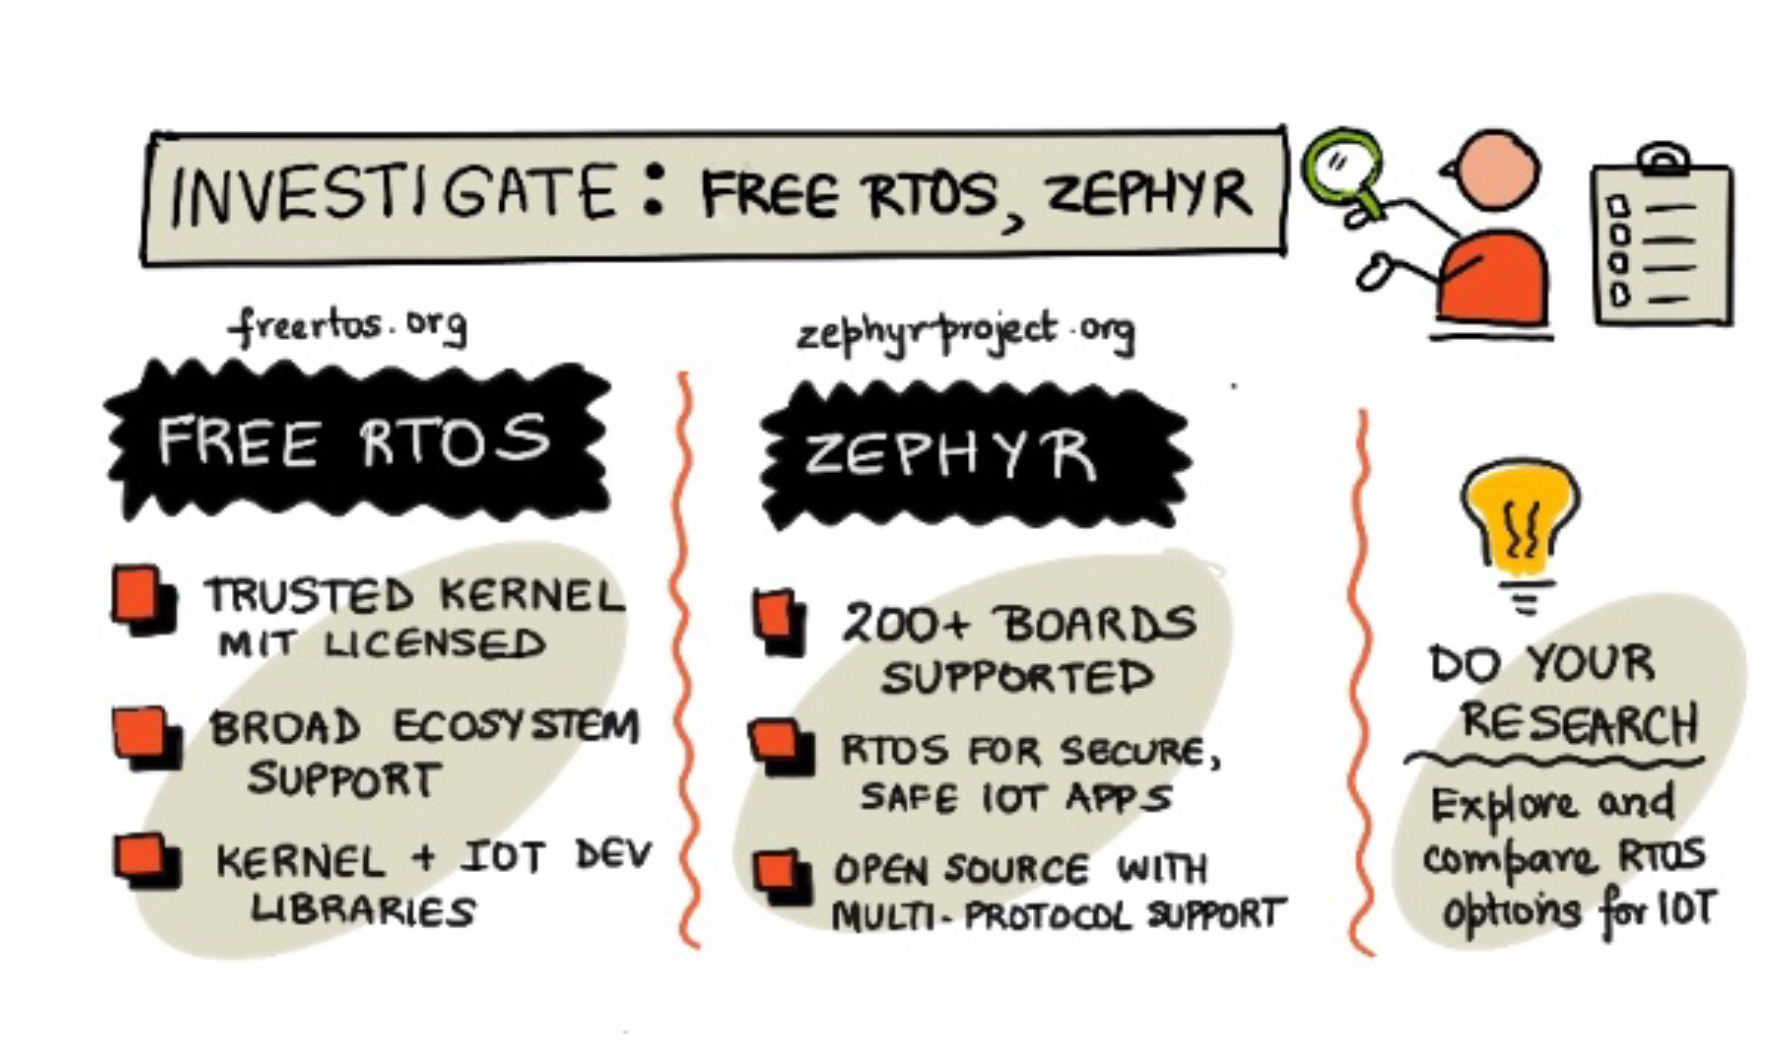 INVESTIGATE: FREE RTOS, ZEPHYR
freertos.org
FREE RTOS
TRUSTED KERNEL
MIT LICENSED
BROAD ECOSYSTEM
SUPPORT
KERNEL + IOT DEV
LIBRARIES
zephyrproject.org
ZEPHYR
200+ BOARDS
SUPPORTED
RTOS FOR SECURE,
SAFE IOT APPS
OPEN SOURCE WITH
MULTI-PROTOCOL SUPPORT
DO YOUR
RESEARCH
Explore and
compare RTOS
options for IOT